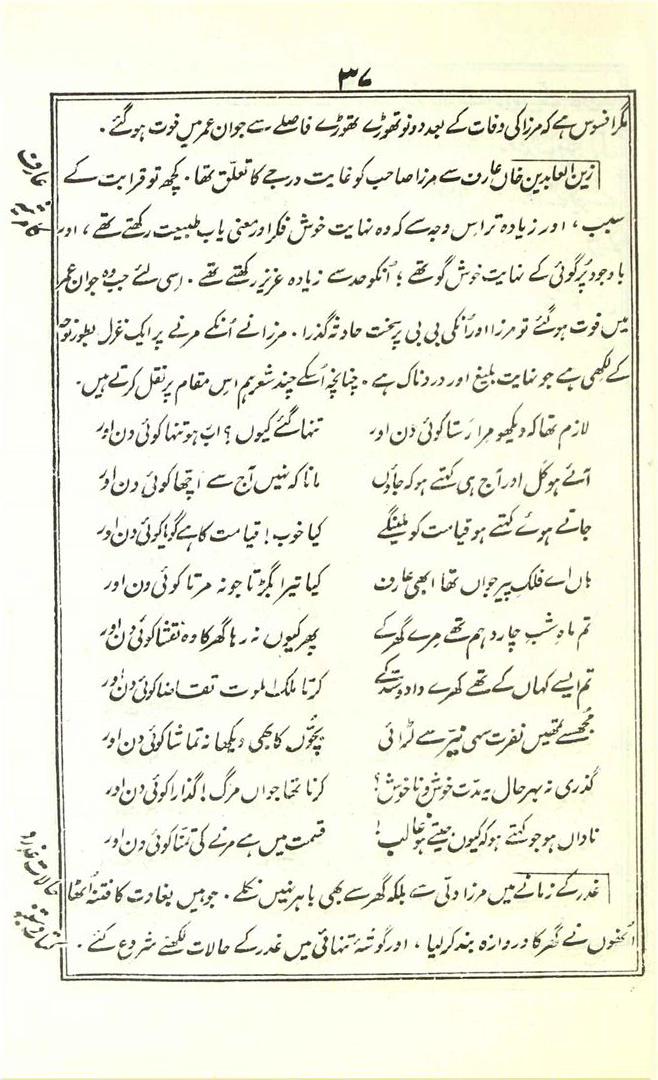 ۳۷
مگر افسوس ہے کہ مرزا کی وفات کے بعد دونو تھوڑے تھوڑے فاصلے سے جوان عمر میں فوت ہو گئے۔
زین العابدین خاں عارف سے مرزا صاحب کو غایت درجے کا تعلّق تھا۔ کچھ تو قرابت کے
سبب، اور زیادہ تر اس وجہ سے کہ وہ نہایت خوش فکر اور معنی یاب طبیعت رکھتے تھے، اور
باوجود پُرگوئی کے نہایت خوش گو تھے؛ اُنکو حد سے زیادہ عزیز رکھتے تھے۔ اِسی لئے جب وہ جوان عمر
میں فوت ہو گئے تو مرزا اور اُنکی بی بی پر سخت حادثہ گذرا۔ مرزا نے اُنکے مرنے پر ایک غزل بطور نوحہ
کے لکھی ہے جو نہایت بلیغ اور دردناک ہے۔ چنانچہ اُسکے چند شعر ہم اِس مقام پر نقل کرتے ہیں۔
لازم تھا کہ دیکھو مرا رستا کوئی دن اور تنہا گئے کیوں؟ اب رہو تنہا کوئی دن اور
آئے ہو کل اور آج ہی کہتے ہو کہ جاؤں مانا کہ نہیں آج سے اچھا کوئی دن اور
جاتے ہوئے کہتے ہو قیامت کو ملینگے کیا خوب! قیامت کا ہے گویا کوئی دن اور
ہاں اے فلکِ پیر جواں تھا ابھی عارف کیا تیرا بگڑتا جو نہ مرتا کوئی دن اور
تم ماہِ شبِ چاردہم تھے مرے گھر کے پھر کیوں نہ رہا گھر کا وہ نقشا کوئی دن اور
تم ایسے کہاں کے تھے کھرے داد و ستد کے کرتا ملک الموت تقاضا کوئی دن اور
مُجھسے تمھیں نفرت سہی نیّر سے لڑائی بچّوں کا بھی دیکھا نہ تماشا کوئی دن اور
گذری نہ بہر حال یہ مدّت خوش و ناخوش؟ کرنا تھا جواں مرگ! گذارا کوئی دن اور
ناداں ہو جو کہتے ہو کہ کیوں جیتے ہو غالب! قسمت میں ہے مرنے کی تمنّا کوئی دن اور
غدر کے زمانے میں مرزا دلّی سے بلکہ گھر سے بھی باہر نہیں نکلے۔ جوہیں بغاوت کا فتنہ اُٹھا
اُنھوں نے گھر کا دروازہ بند کر لیا، اور گوشۂ تنہائی میں غدر کے حالات لکھنے شروع کئے۔
عارف کا مرثیہ
حالات غدر و